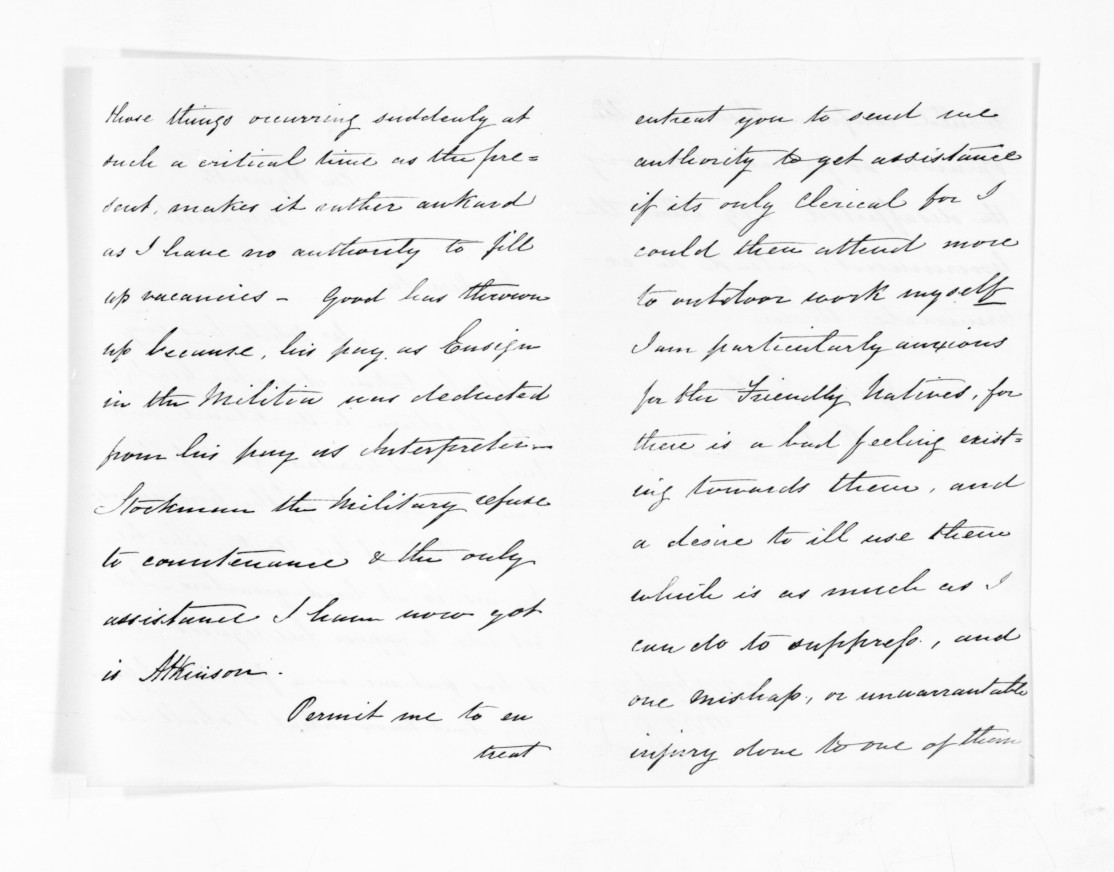 those things occurring suddenly at
such a critical time as the pre=
sent, makes it rather aukard
as I have no authority to fill
up vacancies - Good has thrown
up because, his pay as Ensign
in the Militia was deducted
from his pay as Interpreter -
Stockman the Military refuse
to countenance & the only
assistance I have now got
is Atkinson.
Permit me to en
treat
entreat you to send me
authority to get assistance
if its only Clerical for I
could then attend more
to outdoor work myself
I am particularly anxious
for the Friendly Natives, for
there is a bad feeling exist=
ing towards them, and
a desire to ill use them
which is as much as I
can do to suppress, and
one mishap, or unwarrantable
injury done to one of them